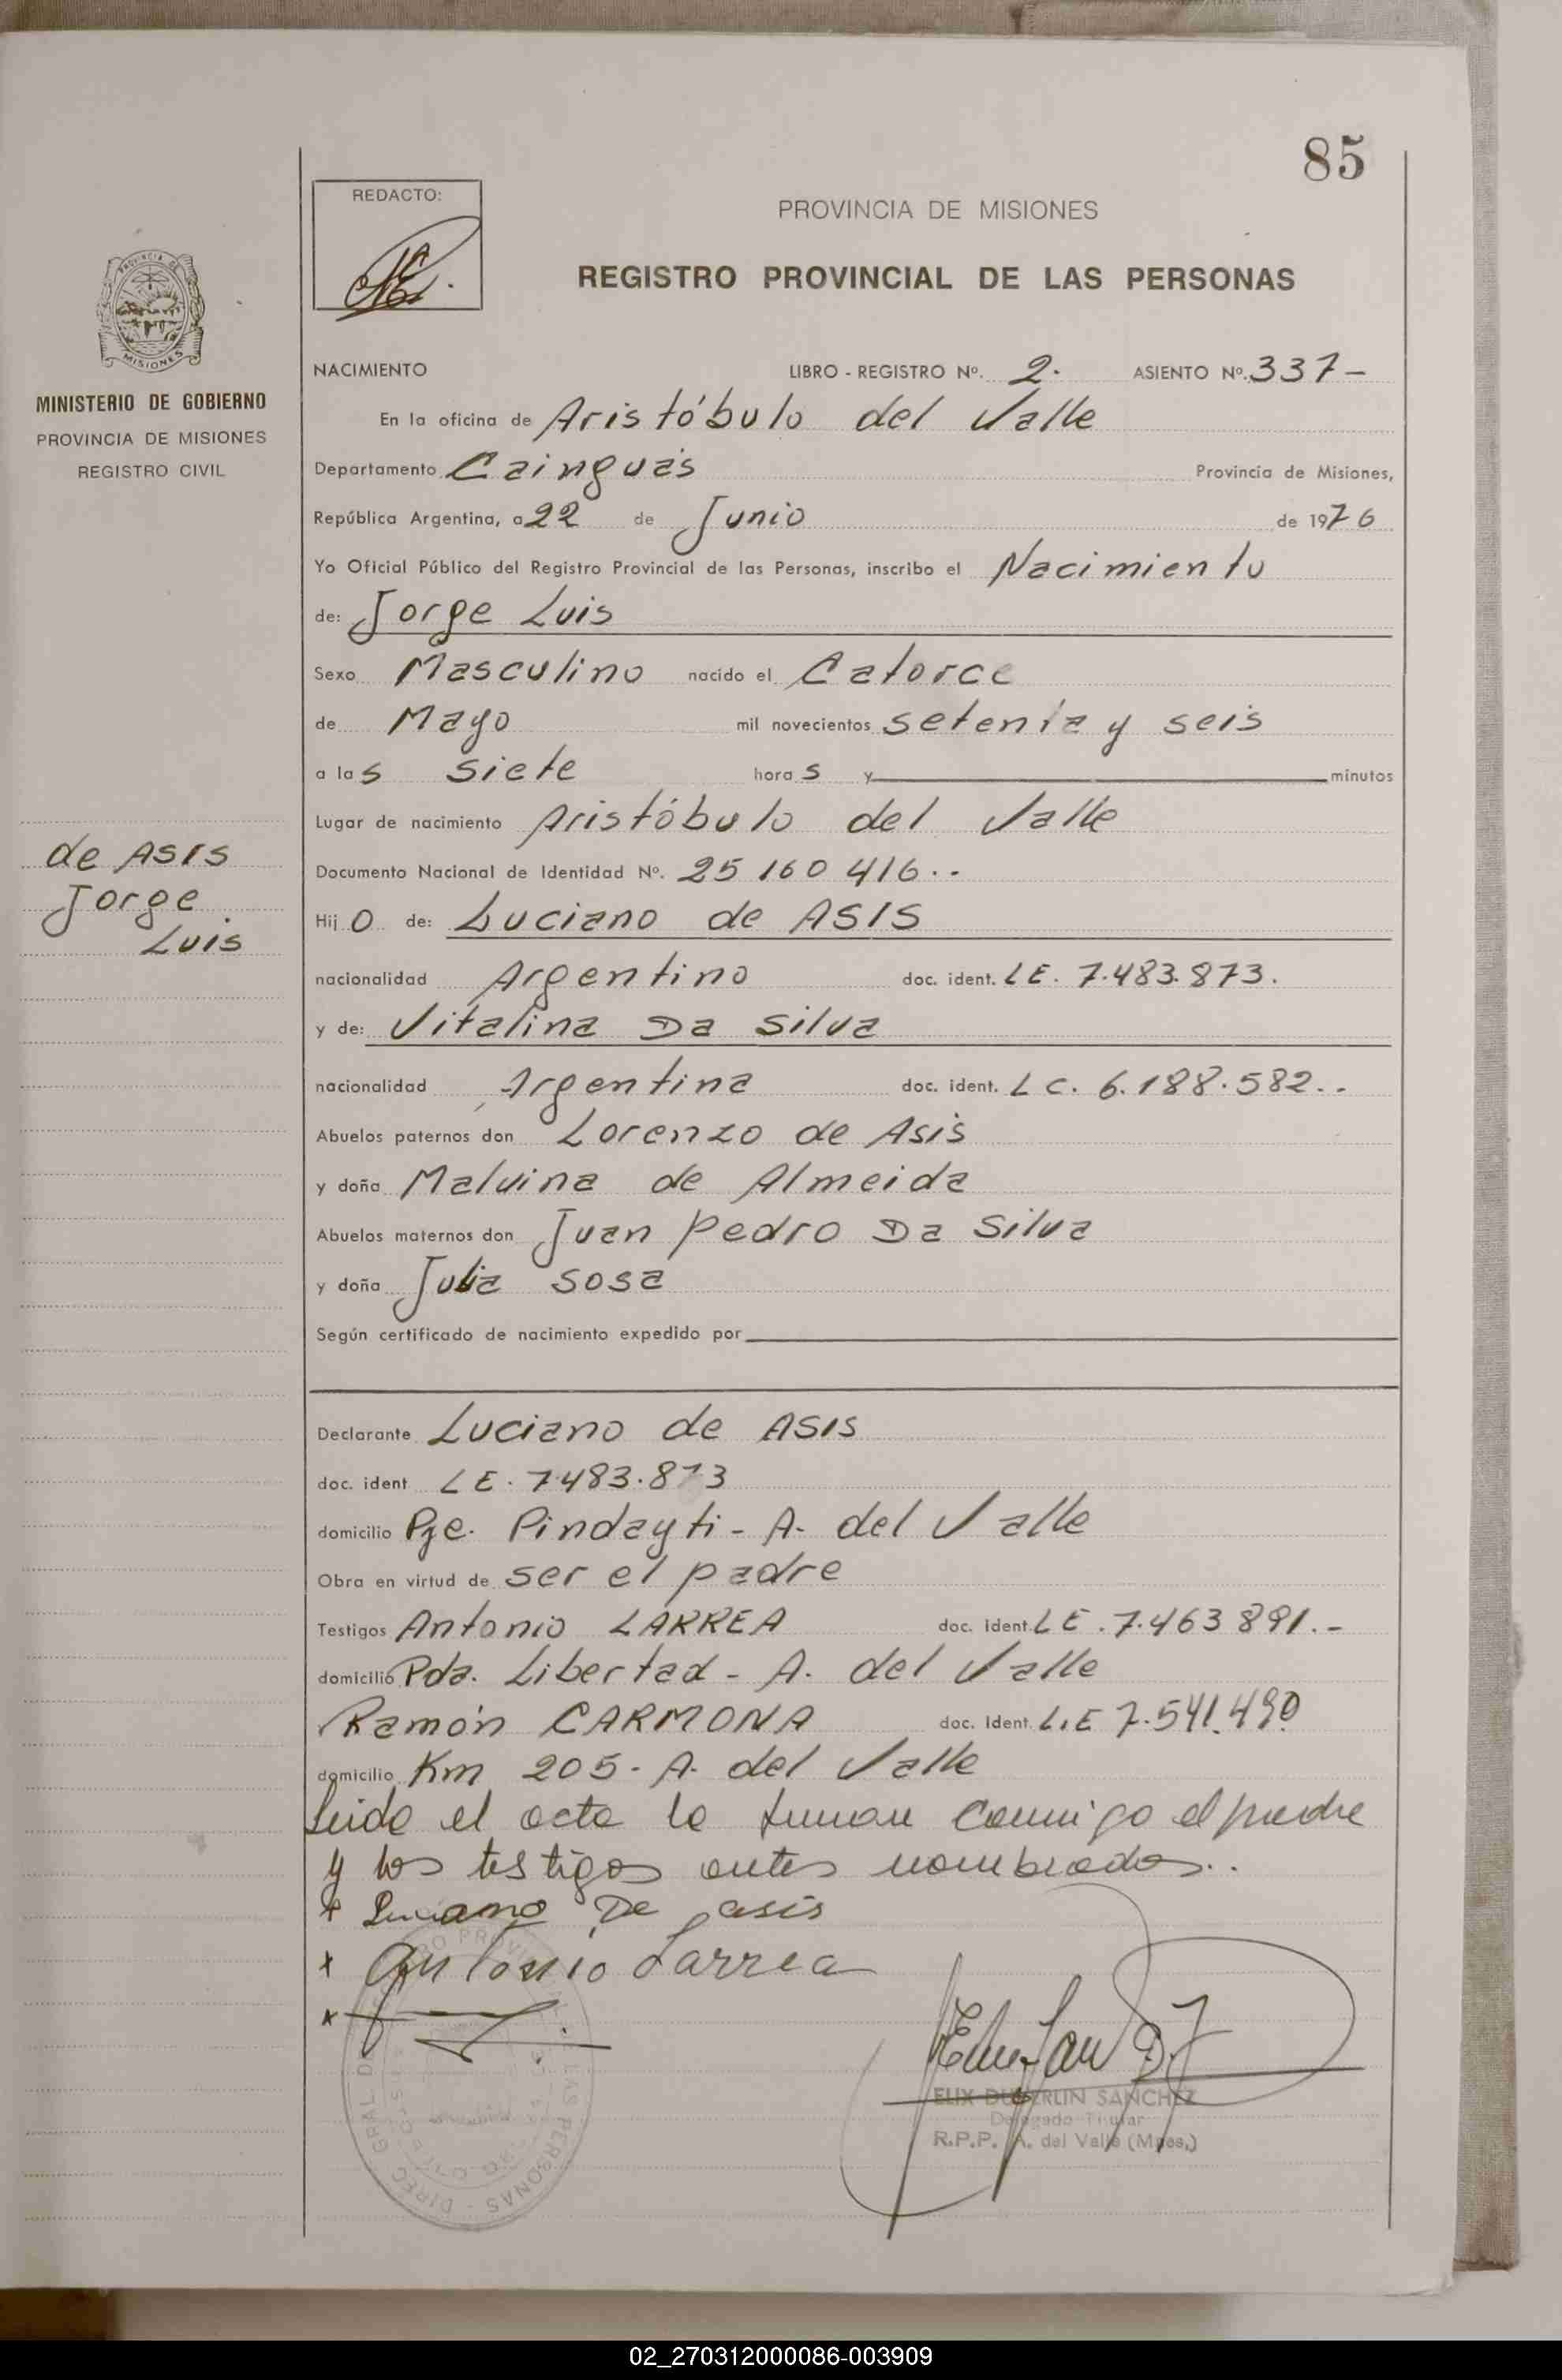 85
REDACTO:
PROVINCIA DE MISIONES
REGISTRO PROVINCIAL DE LAS PERSONAS
PROVINCIA DE
MISIONES
MINISTERIO DE GOBIERNO
PROVINCIA DE MISIONES
REGISTRO CIVIL
NACIMIENTO LIBRO - REGISTRO Nº. 2. ASIENTO Nº. 337-
En la oficina de Aristóbulo del Valle
Departamento Cainguás Provincia de Misiones,
República Argentina, a 22 de Junio de 1976
Yo Oficial Público del Registro Provincial de las Personas, inscribo el Nacimiento
de: Jorge Luis
Sexo Masculino nacido el Catorce
de Mayo mil novecientos setenta y seis
a las siete horas y minutos
Lugar de nacimiento Aristóbulo del Valle
de ASIS
Jorge
Luis
Documento Nacional de Identidad Nº. 25 160 416..
Hijo de: Luciano de ASIS
nacionalidad Argentino doc. ident. LE. 7.483.873.
y de: Vitalina Da Silva
nacionalidad Argentina doc. ident. LC. 6.188.582..
Abuelos paternos don Lorenzo de Asis
y doña Malvina de Almeida
Abuelos maternos don Juan Pedro Da Silva
y doña Julia Sosa
Según certificado de nacimiento expedido por
Declarante Luciano de ASIS
doc. ident LE. 7.483.873
domicilio Pje. Pindayti - A. del Valle
Obra en virtud de ser el padre
Testigos Antonio LARREA doc. ident. LE. 7.463 891.-
domicilio Pda. Libertad - A. del Valle
Ramón CARMONA doc. Ident. L.E 7.541.490
domicilio Km 205 - A. del Valle
Leida el acta la firman conmigo el padre
y los testigos antes nombrados..
x Luciano De asis
x Antonio Larrea
x
ELIX DUBERLIN SANCHEZ
Delegado Titular
R.P.P. A. del Valle (Mnes.)
02_270312000086-003909